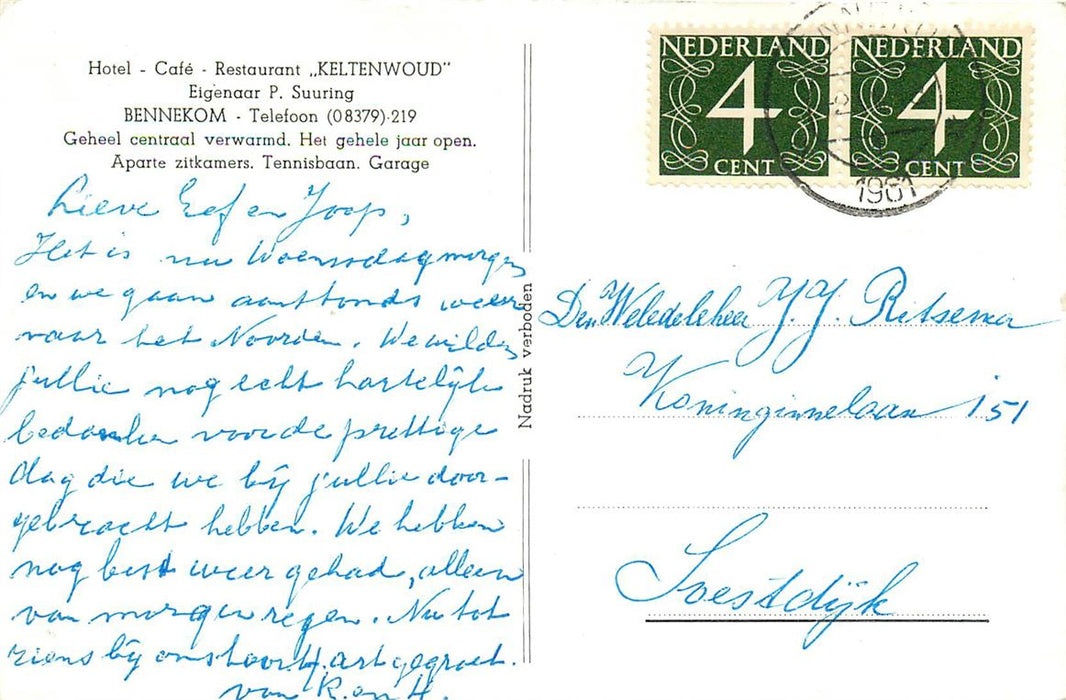 Hotel - Café - Restaurant „KELTENWOUD"
Eigenaar P. Suuring
BENNEKOM - Telefoon (08379)-219
Geheel centraal verwarmd. Het gehele jaar open.
Aparte zitkamers. Tennisbaan. Garage
Lieve Eef en Joop,
Het is nu Woensdagmorgen
en we gaan aanstonds weer
naar het Noorden. We wilden
jullie nog echt hartelijk
bedanken voor de prettige
dag die we bij jullie door-
gebracht hebben. We hebben
nog best weer gehad, alleen
van morgen regen. Nu tot
ziens bij ons hoor. Hart. gegroet.
van R. en H.
Nadruk verboden
NEDERLAND
4
CENT
NEDERLAND
4
CENT
1961
Den Weledele heer J. J. Ritsema
Koninginnelaan 151
Soestdijk